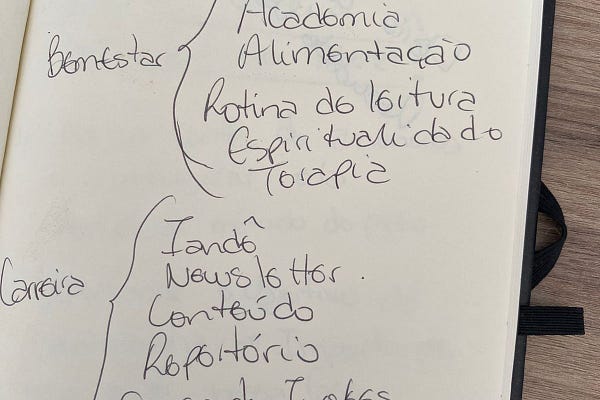 Academia
Bem estar
Alimentação
Rotina de leitura
Espiritualidade
Terapia
Iandê
Carreira
Newsletter.
Conteúdo
Repertório